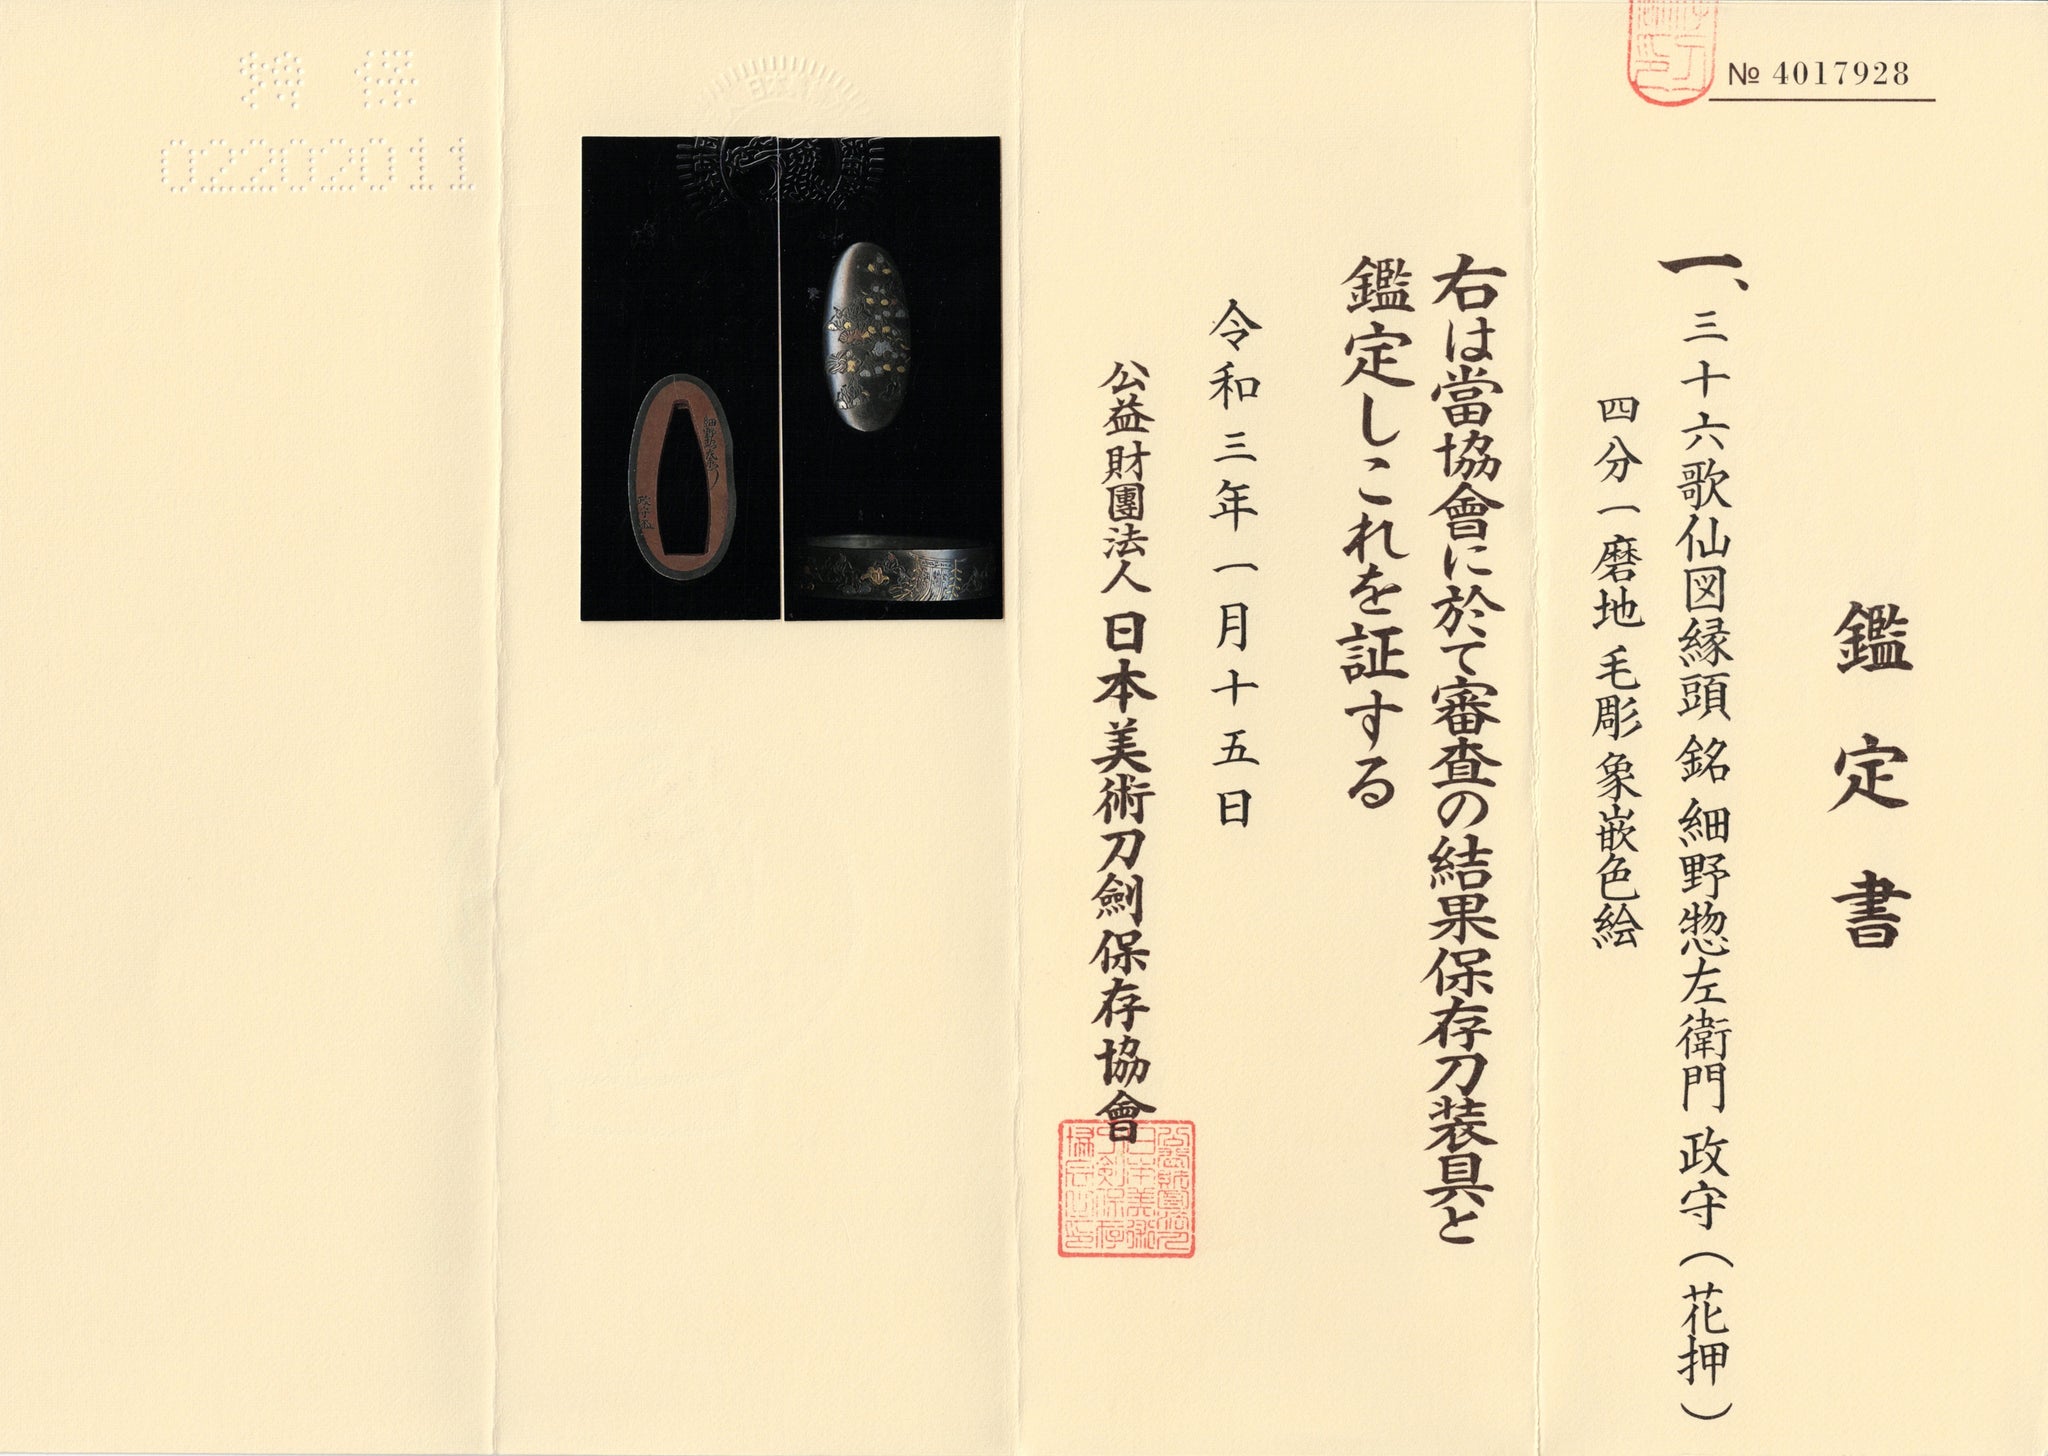 № 4017928
鑑定書
一、三十六歌仙図縁頭 銘 細野惣左衛門 政守（花押）
四分一磨地 毛彫 象嵌色絵
右は當協會に於て審査の結果保存刀装具と
鑑定しこれを証する
令和三年一月十五日
公益財團法人 日本美術刀劍保存協會
02202011